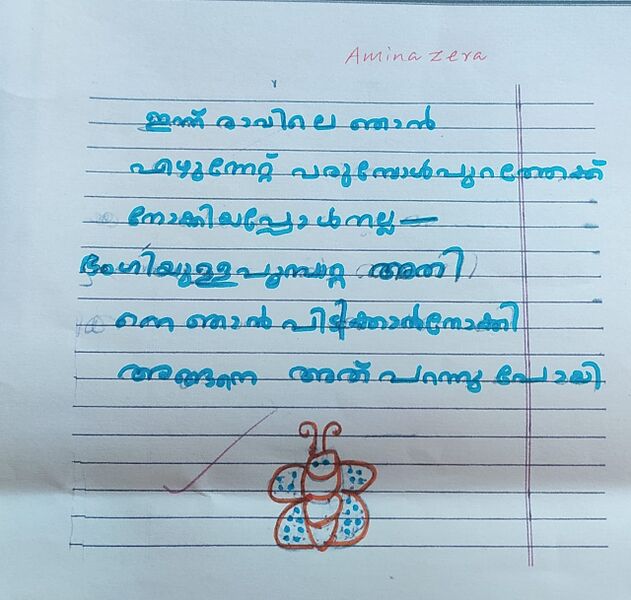 Amina zera
ഇന്ന് രാവിലെ ഞാൻ
എഴുന്നേറ്റ് വരുമ്പോൾ പുറത്തേക്ക്
നോക്കിയപ്പോൾ നല്ല
ഭംഗിയുള്ള പൂമ്പാറ്റ അതി
നെ ഞാൻ പിടിക്കാൻ നോക്കി
അങ്ങനെ അത് പറന്നു പോയി